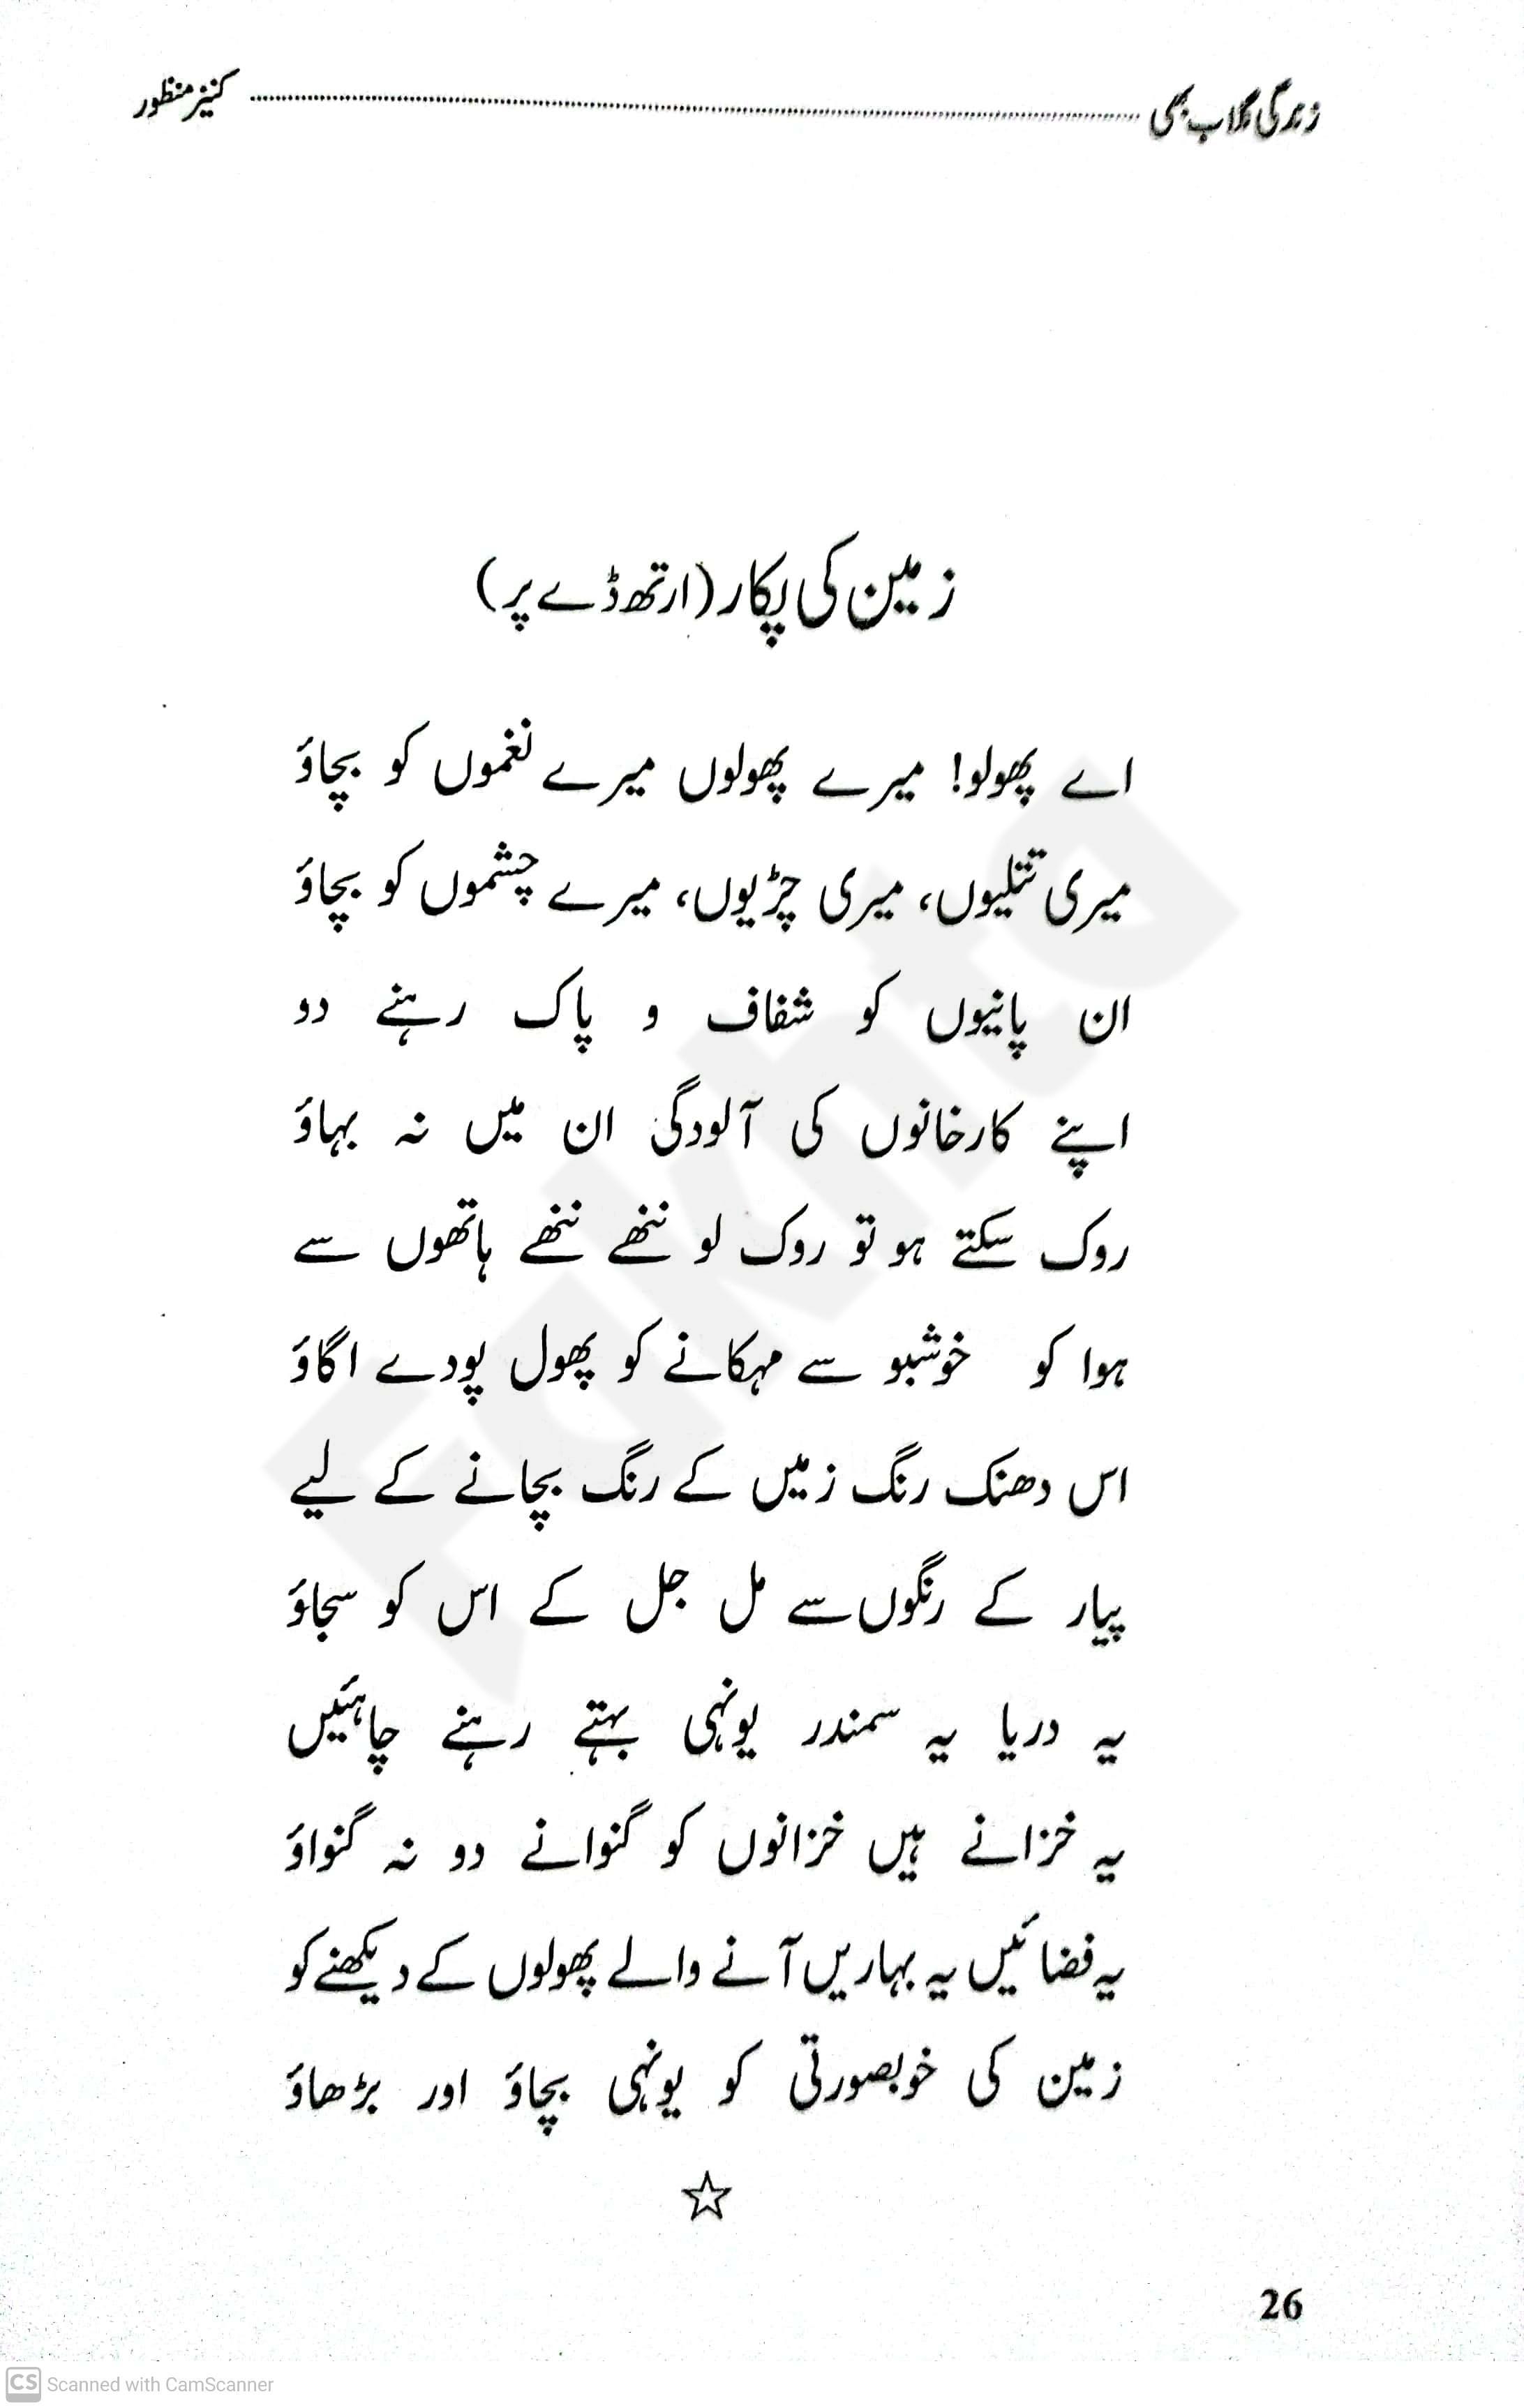 زندگی گلاب بھی ........................ کنیز منظور
زمین کی پکار (ارتھ ڈے پر)
اے پھولو! میرے پھولوں میرے نغموں کو بچاؤ
میری تتلیوں، میری چڑیوں، میرے چشموں کو بچاؤ
ان پانیوں کو شفاف و پاک رہنے دو
اپنے کارخانوں کی آلودگی ان میں نہ بہاؤ
روک سکتے ہو تو روک لو ننھے ننھے ہاتھوں سے
ہوا کو خوشبو سے مہکانے کو پھول پودے اگاؤ
اس دھنک رنگ زمیں کے رنگ بچانے کے لیے
پیار کے رنگوں سے مل جل کے اس کو سجاؤ
یہ دریا یہ سمندر یونہی بہتے رہنے چاہئیں
یہ خزانے ہیں خزانوں کو گنوانے دو نہ گنواؤ
یہ فضائیں یہ بہاریں آنے والے پھولوں کے دیکھنے کو
زمین کی خوبصورتی کو یونہی بچاؤ اور بڑھاؤ
☆
26
CS Scanned with CamScanner